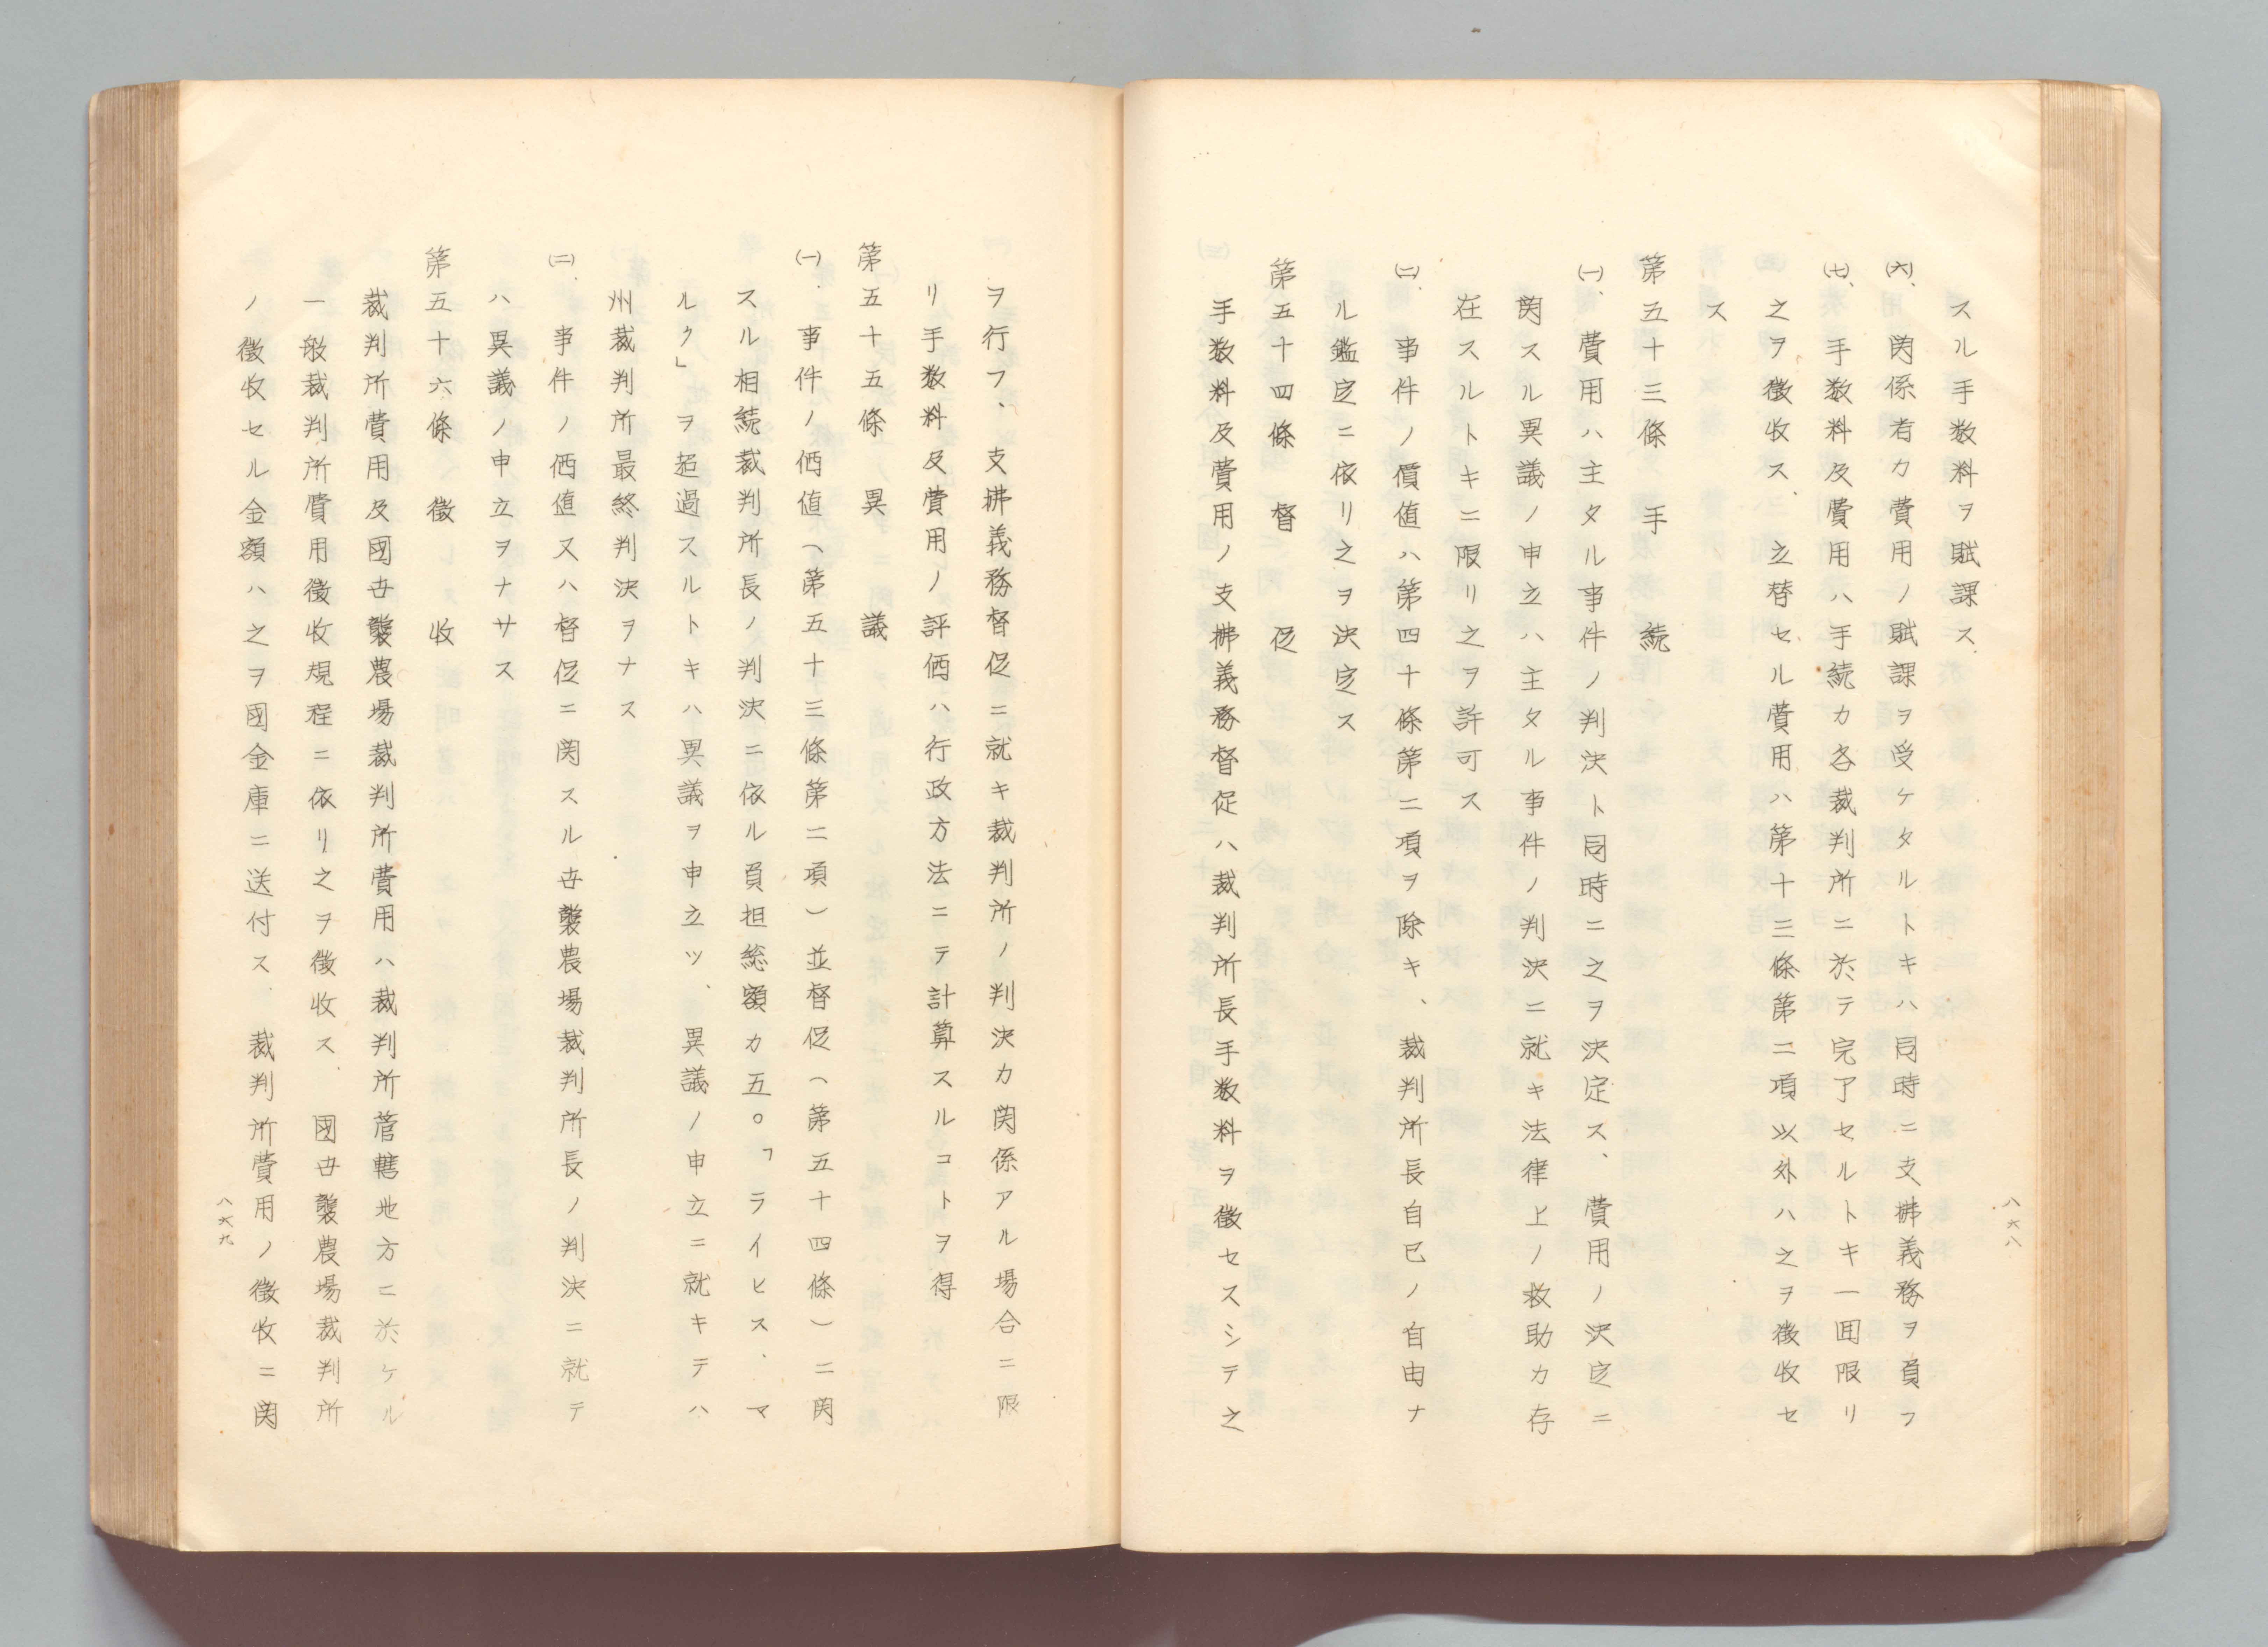 八六八
スル手数料ヲ賦課ス、
(六)、関係有カ費用ノ賦課ヲ受ケタルトキハ同時ニ支拂義務ヲ負フ
(七)、手数料及費用ハ手続カ各裁判所ニ於テ完了セルトキ一囬限リ
之ヲ徴收ス、立替セル費用ハ第十三條第二項以外ハ之ヲ徴收セ
ス
第五十三條　手　続
(一)、費用ハ主タル事件ノ判決ト同時ニ之ヲ決定ス、費用ノ決定ニ
関スル異議ノ申立ハ主タル事件ノ判決ニ就キ法律上ノ救助カ存
在スルトキニ限リ之ヲ許可ス
(二)、事件ノ價値ハ第四十條第二項ヲ除キ、裁判所長自己ノ自由ナ
ル鑑定ニ依リ之ヲ決定ス
第五十四條　督　促
手数料及費用ノ支拂義務督促ハ裁判所長手数料ヲ徴セスシテ之
ヲ行フ、支拂義務督促ニ就キ裁判所ノ判決カ関係アル場合ニ限
リ手数料及費用ノ評価ハ行政方法ニテ計算スルコトヲ得
第五十五條　異　議
(一)、事件ノ価値（第五十三條第二項）並督促（第五十四條）ニ関
スル相続裁判所長ノ判決ニ依ル負担総額カ五〇「ライヒス、マ
ルク」ヲ超過スルトキハ異議ヲ申立ツ、異議ノ申立ニ就キテハ
州裁判所最終判決ヲナス
(二)、事件ノ価値又ハ督促ニ関スル世襲農場裁判所長ノ判決ニ就テ
ハ異議ノ申立ヲナサス
第五十六條　徴　收
裁判所費用及國世襲農場裁判所費用ハ裁判所管轄地方ニ於ケル
一般裁判所費用徴收規程ニ依リ之ヲ徴收ス、國世襲農場裁判所
ノ徴收セル金額ハ之ヲ國金庫ニ送付ス、裁判所費用ノ徴收ニ関
八六九